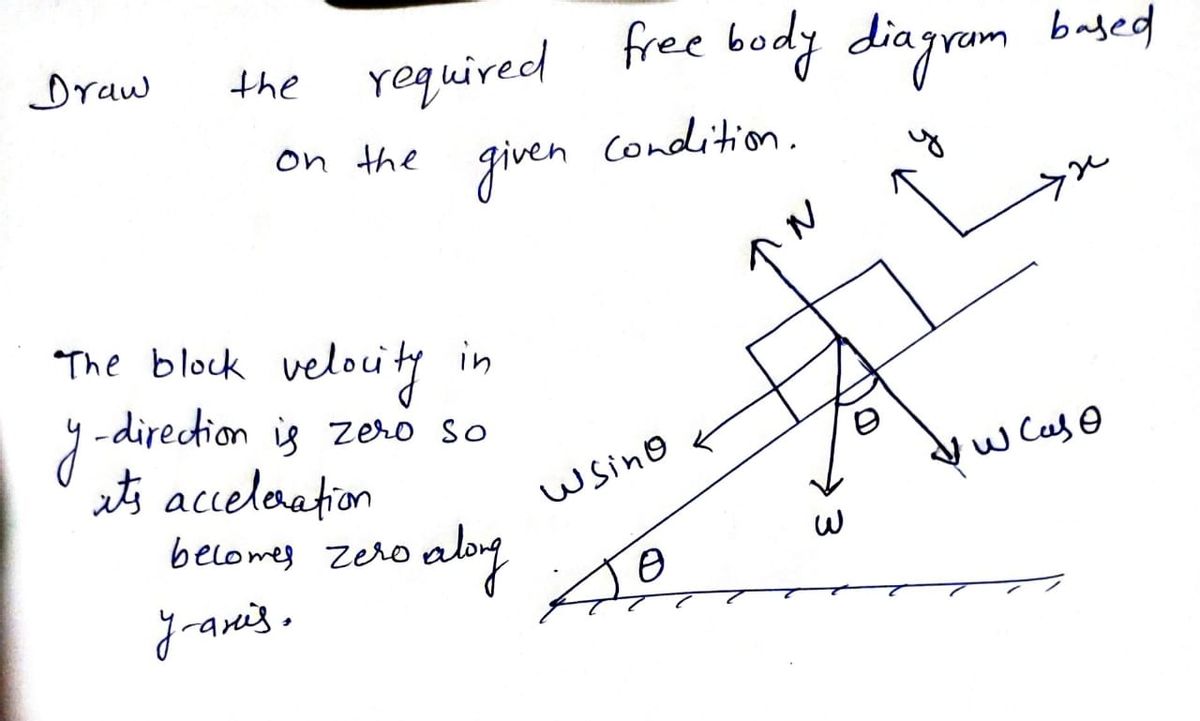 Draw the required free body diagram based
on the given condition.
y
x
N
The block velocity in
y-direction is zero so
its acceleration
becomes zero along
y-axis.
θ
w sinθ
w cosθ
w
θ